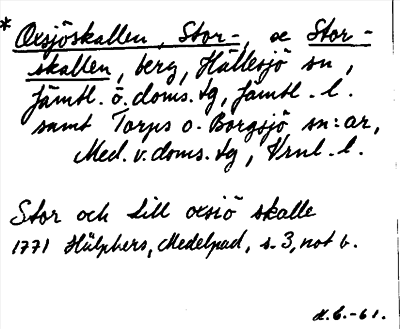 * Oxsjöskallen, Stor-, se Stor-
skallen, berg, Hällesjö sn,
Jämtl. ö. doms. tg, Jämtl. l.
samt Torps o. Borgsjö sn:ar,
Med. v. doms. tg, Vrnl. l.
Stor och Lill oxsiö skalle
1771 Hülphers, Medelpad, s. 3, not b.
K.G.-61.